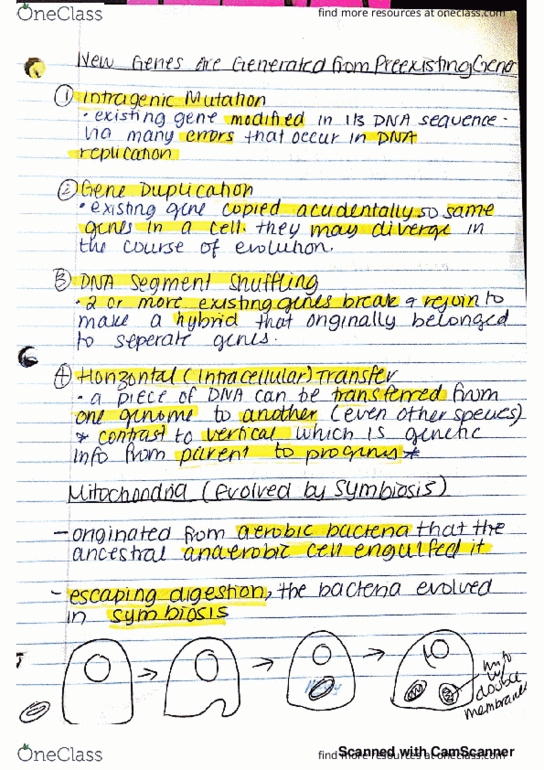 OneClass
find more resources at oneclass.com
New Genes are Generated from Preexisting Gene
① Intragenic Mutation
• existing gene modified in its DNA sequence -
via many errors that occur in DNA
replication
② Gene Duplication
• existing gene copied accidentally so same
genes in a cell. they may diverge in
the course of evolution.
③ DNA Segment Shuffling
• 2 or more existing genes break & rejoin to
make a hybrid that originally belonged
to seperate genes.
④ Horizontal (Intracellular) Transfer
• a piece of DNA can be transferred from
one genome to another (even other species)
* contrast to vertical which is genetic
info from parent to progeny *
Mitochondria (Evolved by Symbiosis)
- originated from aerobic bacteria that the
ancestral anaerobic cell engulfed it
- escaping digestion, the bacteria evolved
in symbiosis
mito
w/
double
membranes
OneClass
find more resources at oneclass.com
Scanned with CamScanner